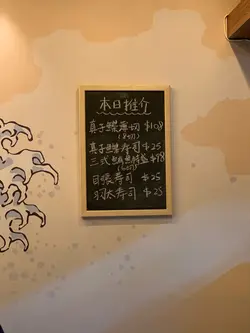 本日推介
真子鰈薄切 $108
(8切)
真子鰈寿司 $25
三式 $98
目張寿司 $25
羽太寿司 $25